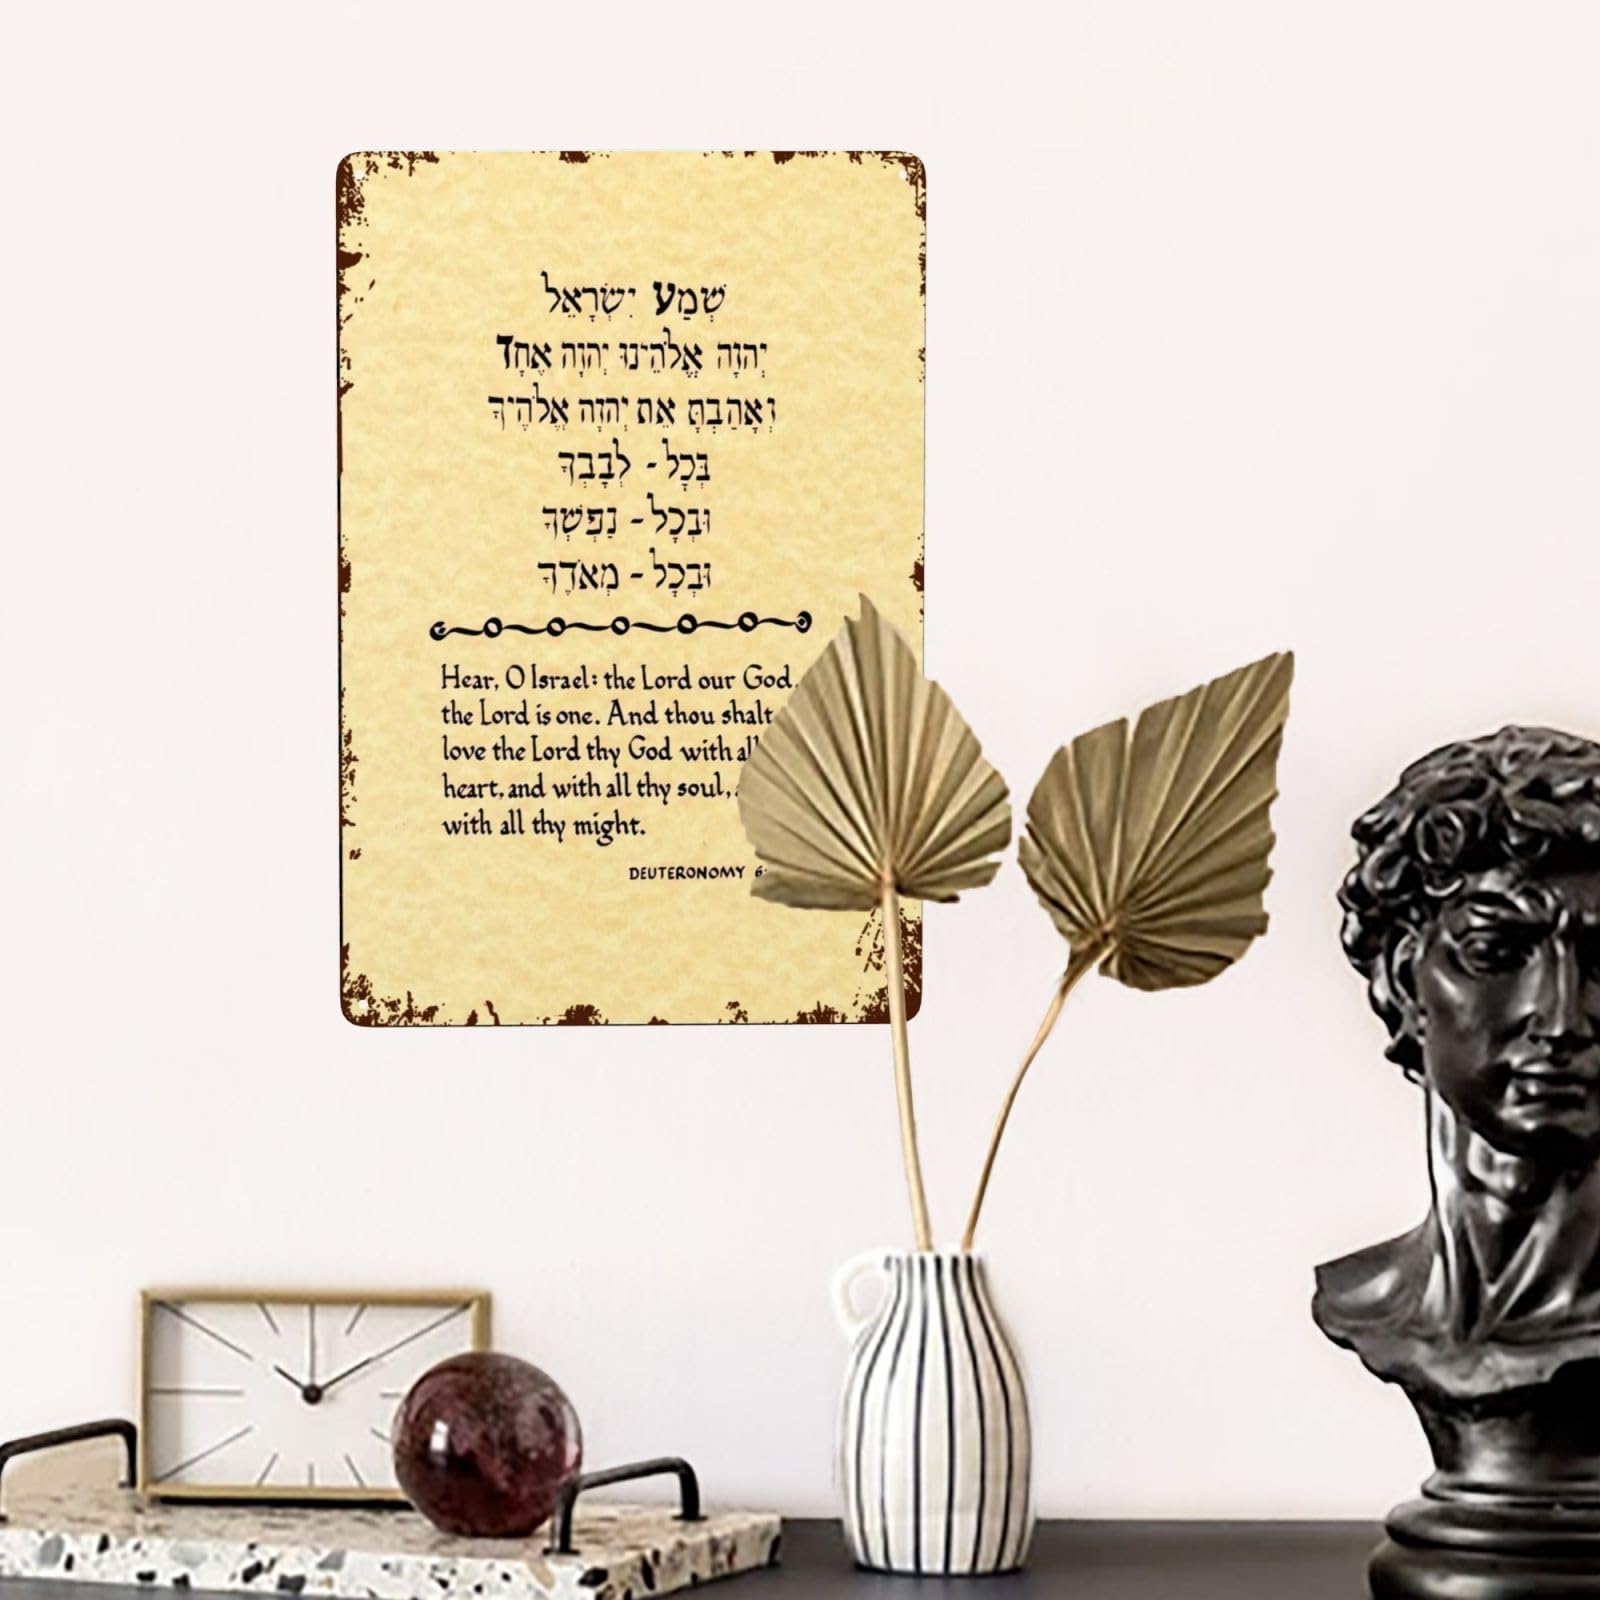 שְׁמַע יִשְׂרָאֵל
יְהוָה אֱלֹהֵינוּ יְהוָה אֶחָד
וְאָהַבְתָּ אֵת יְהוָה אֱלֹהֶיךָ
בְּכָל - לְבָבְךָ
וּבְכָל - נַפְשְׁךָ
וּבְכָל - מְאֹדֶךָ
Hear, O Israel: the Lord our God,
the Lord is one. And thou shalt
love the Lord thy God with all
heart, and with all thy soul,
with all thy might.
DEUTERONOMY 6: